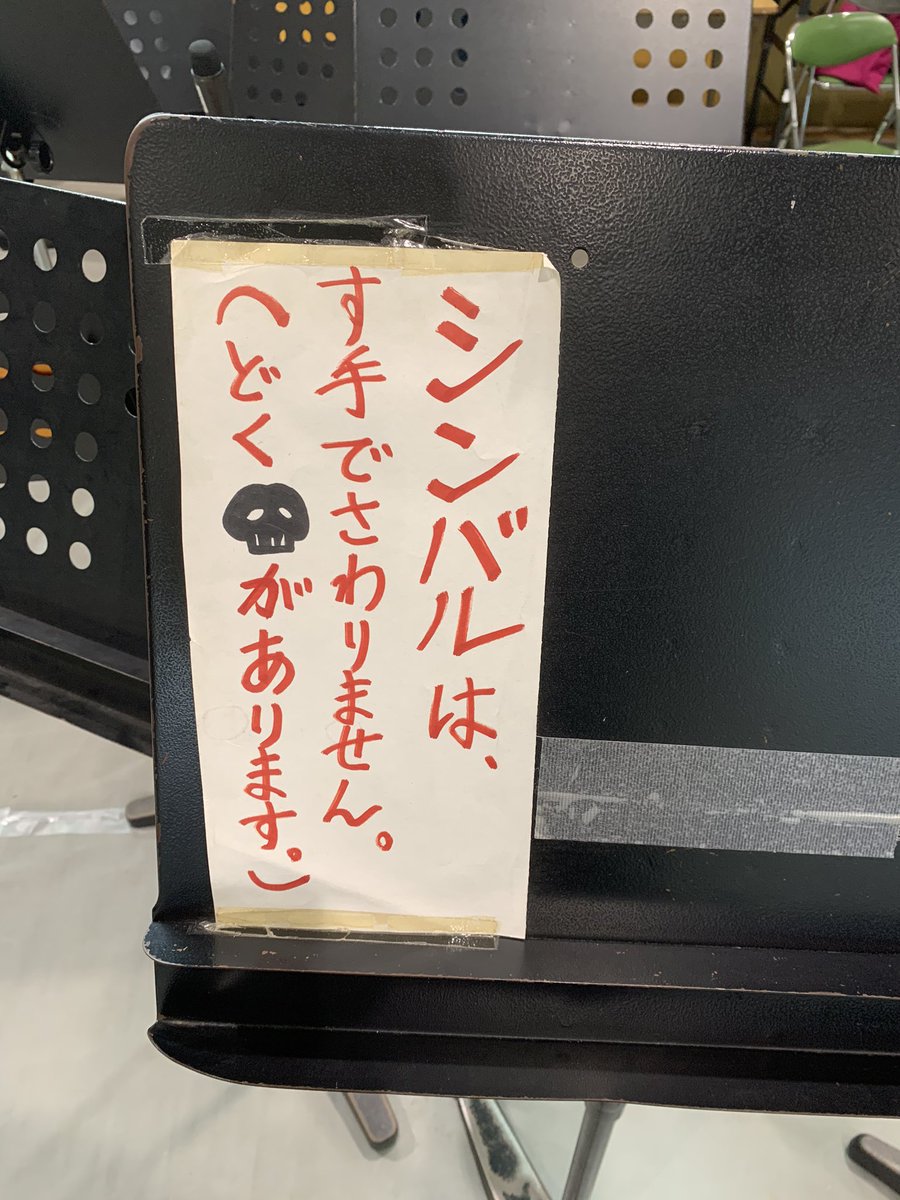 シンバルは、
す手でさわりません。
(どくがあります。)